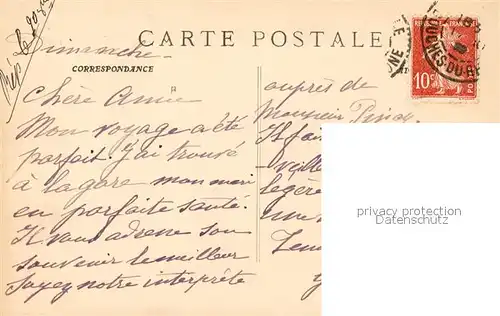 Rép le 20
Dimanche
CARTE POSTALE
CORRESPONDANCE
Chère Amie
Mon voyage a été
parfait. J'ai trouvé
à la gare mon mari
en parfaite santé.
Il vous adresse son
souvenir le meilleur
Soyez notre interprète
auprès de
Monsieur
Il fai
veille
légère
une
10c
BOUCHES-DU-R
privacy protection